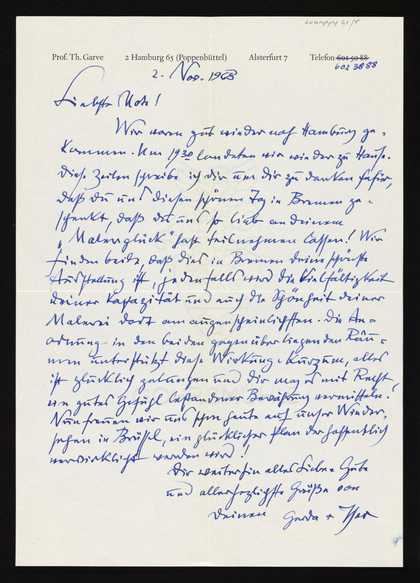 Prof. Th. Garve 2 Hamburg 65 (Poppenbüttel) Alsterfurt 7 Telefon 601 50 88
602 3888
2. Nov. 1968
Liebste Mote!
Wir waren gut wieder nach Hamburg ge-
kommen. Um 19 30 landeten wir wieder zu Hause.
Diese Zeilen schreibe ich dir um dir zu danken dafür,
daß du uns diesen schönen Tag in Bremen ge-
schenkt, daß du uns so lieb an deinem
"Malerglück" hast teilnehmen lassen! Wir
finden beide, daß dies in Bremen deine schönste
Ausstellung ist, jedenfalls wird die Vielfältigkeit
deiner Kapazität und auch die Schönheit deiner
Malerei dort am augenscheinlichsten. Die An-
ordnung in den beiden gegenüberliegenden Räu-
men unterstützt diese Wirkung. Kurzum, alles
ist glücklich gelungen und dir mag es mit Recht
ein gutes Gefühl bestandener Bewährung vermitteln.
Nun freuen wir uns schon heute auf unser Wieder-
sehen in Brüssel, ein glücklicher Plan der hoffentlich
verwirklicht werden wird!
Dir weiterhin alles Liebe + Gute
und allerherzlichste Grüße von
deinen Gerda +